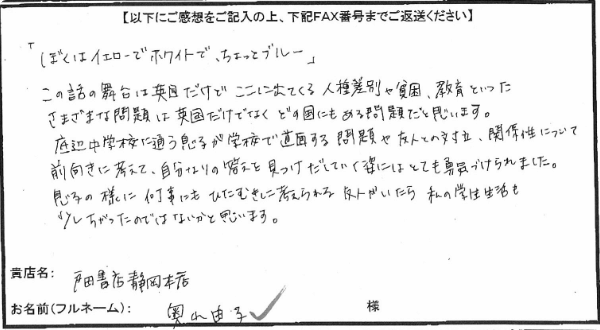 【以下にご感想をご記入の上、下記FAX番号までご返送ください】
「ぼくはイエローでホワイトで、ちょっとブルー」
この話の舞台は英国だけど ここに出てくる人種差別や貧困、教育といった
さまざまな問題は英国だけでなく どの国にもある問題だと思います。
底辺中学校に通う息子が学校で直面する問題や友人との対立、関係性について
前向きに考えて、自分なりの答えを見つけだしていく姿にはとても勇気づけられました。
息子の様に何事にもひたむきに考えられる友人がいたら 私の学生生活も
少しちがったのではないかと思います。
貴店名: 戸田書店静岡本店
お名前(フルネーム): 奥山由子 様